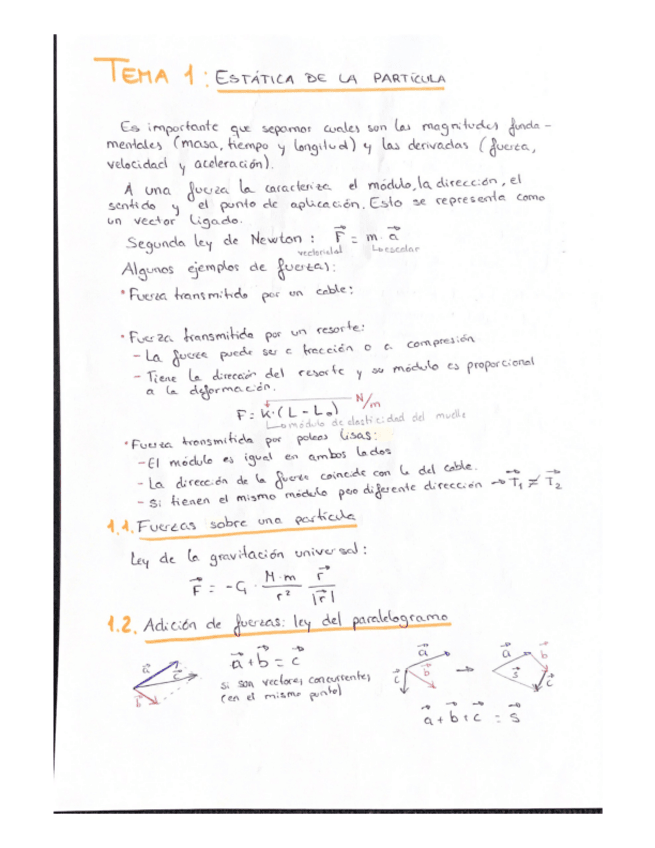 TEMA 1: ESTÁTICA DE LA PARTÍCULA
Es importante que sepamos cuales son las magnitudes funda-
mentales (masa, tiempo y longitud) y las derivadas (fuerza,
velocidad y aceleración).
A una fuerza la caracteriza el módulo, la dirección, el
sentido y el punto de aplicación. Esto se representa como
un vector ligado.
Segunda ley de Newton: F⃗ = m · a⃗
vectorial ↳ escalar
Algunos ejemplos de fuerzas:
• Fuerza transmitida por un cable:
• Fuerza transmitida por un resorte:
- La fuerza puede ser a tracción o a compresión
- Tiene la dirección del resorte y su módulo es proporcional
a la deformación.
F = K · (L - L₀) N/m
↳ módulo de elasticidad del muelle
• Fuerza transmitida por poleas lisas:
- El módulo es igual en ambos lados
- La dirección de la fuerza coincide con la del cable.
- Si tienen el mismo módulo pero diferente dirección → T⃗₁ ≠ T⃗₂
1.1. Fuerzas sobre una partícula
Ley de la gravitación universal:
F⃗ = -G · M·m / r² · r⃗ / |r⃗|
1.2. Adición de fuerzas: ley del paralelogramo
a⃗ c⃗ b⃗
a⃗ + b⃗ = c⃗
si son vectores concurrentes
(en el mismo punto)
a⃗ b⃗ c⃗ → a⃗ b⃗ s⃗ c⃗
a⃗ + b⃗ + c⃗ = s⃗